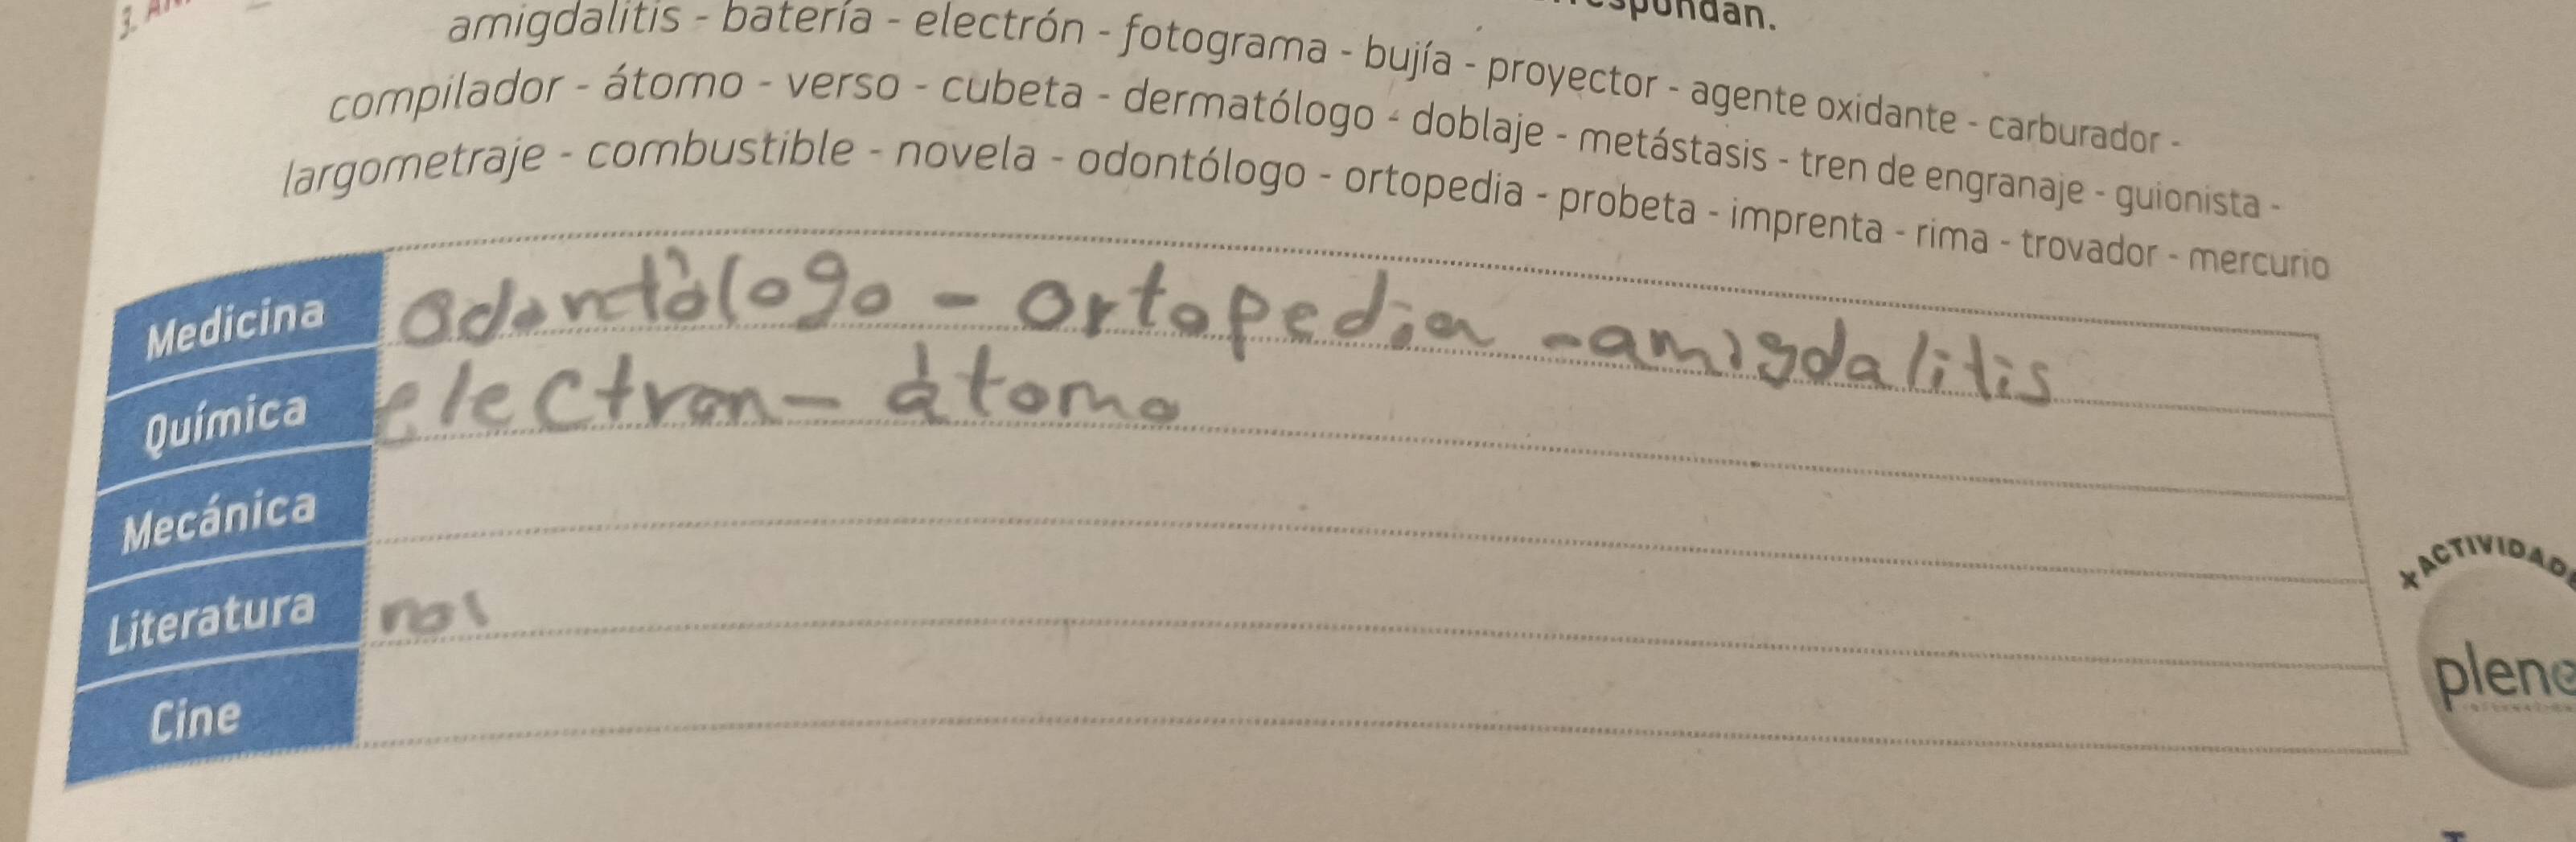 amigdalitis - batería - electrón - fotograma - bujía - proyector - agente oxidante - carburador -
compilador - átomo - verso - cubeta - dermatólogo - doblaje - metástasis - tren de engranaje - guionista -
largometraje - combustible - novela - odontólogo - ortopedia - probeta - imprenta - rima - trovador - mercurio
Medicina odontólogo - ortopedia - amigdalitis
Química electron - átomo
Mecánica
Literatura
Cine